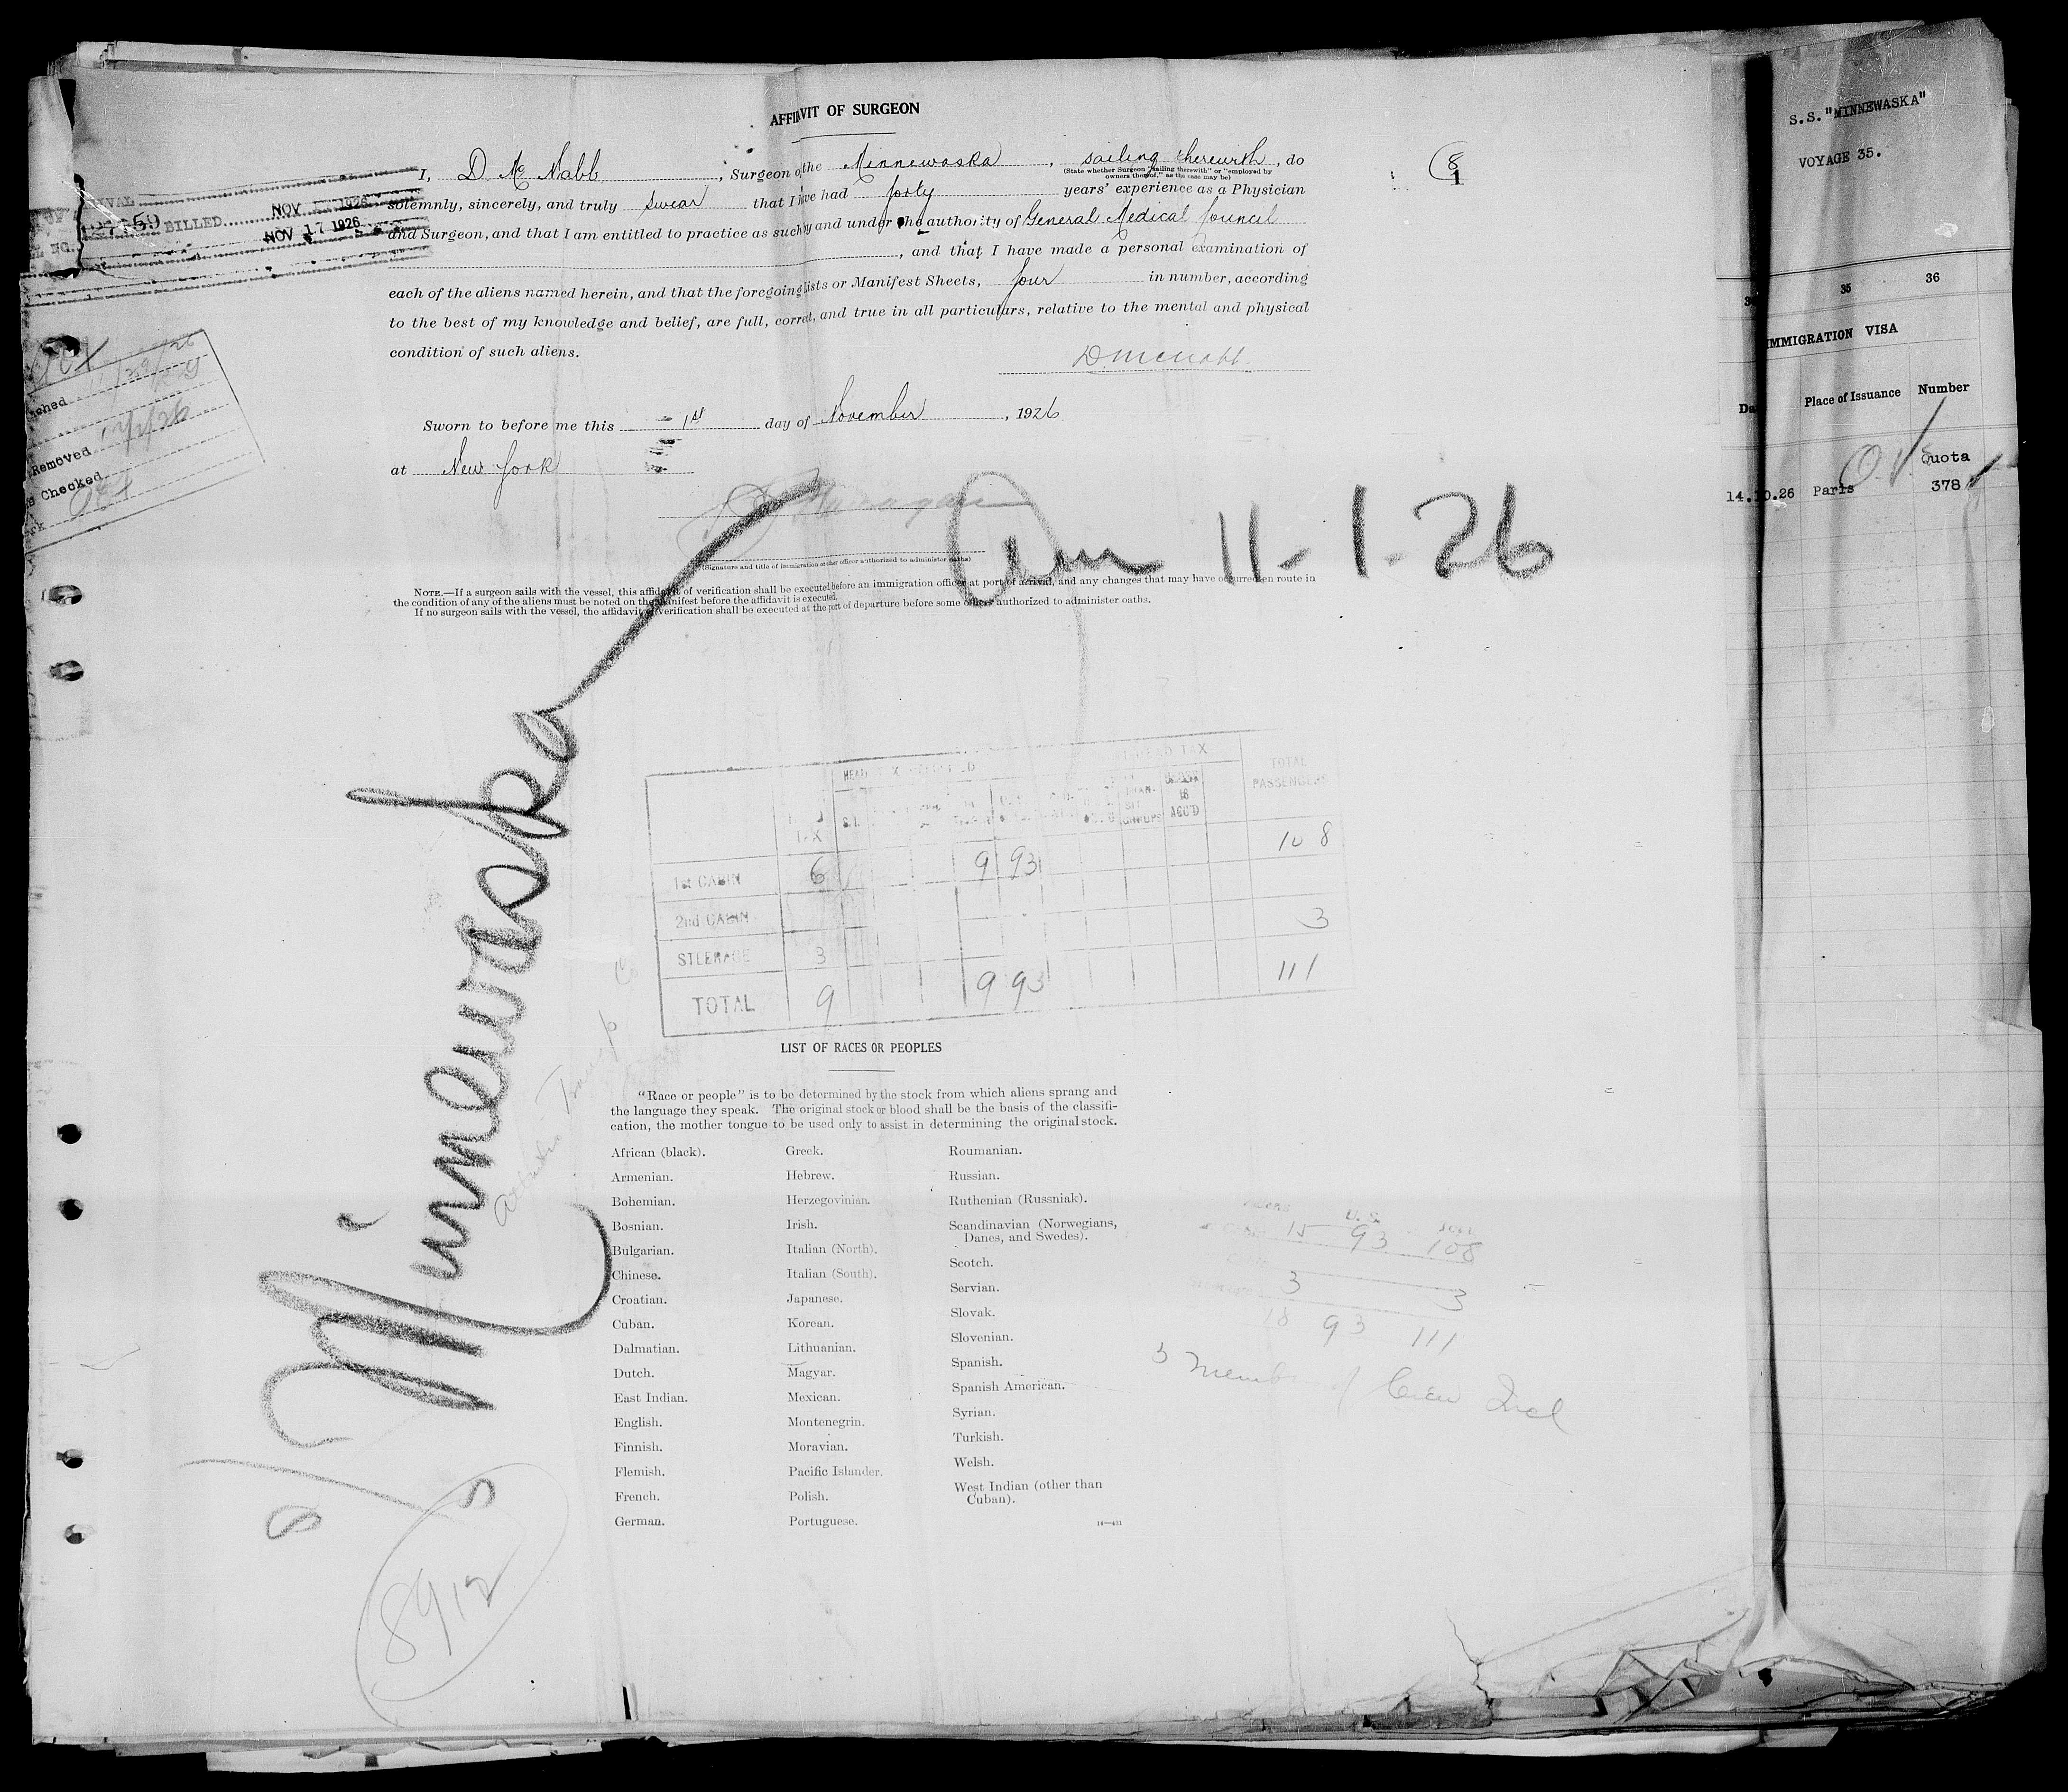 AFFIDAVIT OF SURGEON
I, D Mc Nabb, Surgeon of the Minnewaska, sailing therewith, do
(State whether Surgeon "sailing therewith" or "employed by
owners thereof," as the case may be)
solemnly, sincerely, and truly swear that I have had forty years' experience as a Physician
and Surgeon, and that I am entitled to practice as such by and under the authority of General Medical Council
, and that I have made a personal examination of
each of the aliens named herein, and that the foregoing Lists or Manifest Sheets, four in number, according
to the best of my knowledge and belief, are full, correct, and true in all particulars, relative to the mental and physical
condition of such aliens.
D. McNabb.
Sworn to before me this 1st day of November, 1926
at New York
(Signature and title of immigration or other officer authorized to administer oaths)
11-1-26
NOTE.—If a surgeon sails with the vessel, this affidavit of verification shall be executed before an immigration officer at port of arrival, and any changes that may have occurred en route in
the condition of any of the aliens must be noted on the manifest before the affidavit is executed.
If no surgeon sails with the vessel, the affidavit of verification shall be executed at the port of departure before some officer authorized to administer oaths.
8
1
127159 BILLED
NOV 17 1926
Removed
Checked
Minnewaska
HEAD TAX
TOTAL
PASSENGERS
1st CABIN 6 9 93 108
2nd CABIN
STEERAGE 3 3
TOTAL 9 9 93 111
LIST OF RACES OR PEOPLES
"Race or people" is to be determined by the stock from which aliens sprang and
the language they speak. The original stock or blood shall be the basis of the classifi-
cation, the mother tongue to be used only to assist in determining the original stock.
African (black).
Armenian.
Bohemian.
Bosnian.
Bulgarian.
Chinese.
Croatian.
Cuban.
Dalmatian.
Dutch.
East Indian.
English.
Finnish.
Flemish.
French.
German.
Greek.
Hebrew.
Herzegovinian.
Irish.
Italian (North).
Italian (South).
Japanese.
Korean.
Lithuanian.
Magyar.
Mexican.
Montenegrin.
Moravian.
Pacific Islander.
Polish.
Portuguese.
Roumanian.
Russian.
Ruthenian (Russniak).
Scandinavian (Norwegians,
Danes, and Swedes).
Scotch.
Servian.
Slovak.
Slovenian.
Spanish.
Spanish American.
Syrian.
Turkish.
Welsh.
West Indian (other than
Cuban).
U.S.
15 93 108
3 3
18 93 111
3 Members of Crew Incl
8912
S.S. "MINNEWASKA"
VOYAGE 35.
35 36
IMMIGRATION VISA
Place of Issuance Number
Quota
14.10.26 Paris 378